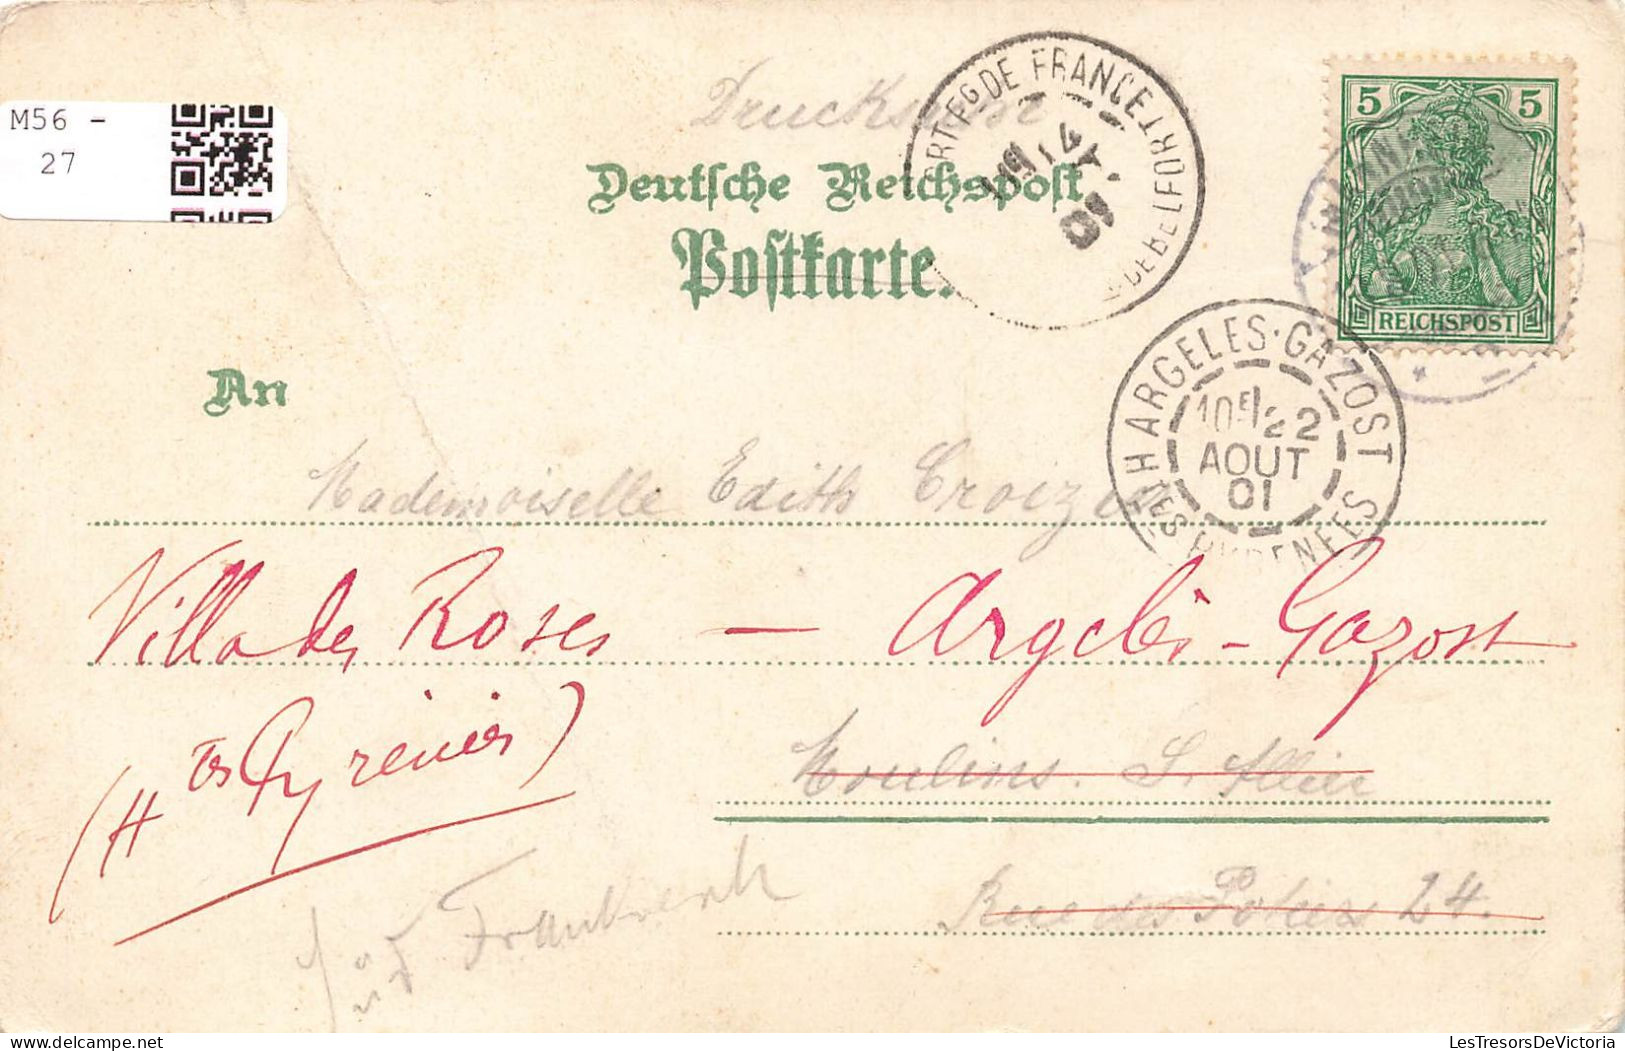 M56 -
27
Drucksache
PORT FG DE FRANCE
BELFORT
Deutsche Reichspost
Postkarte.
5 5
REICHSPOST
An
ARGELES-GAZOST
10E/22
AOUT
01
HTES PYRENEES
Mademoiselle Edith
Villa des Roses — Argelès-Gazost
(Htes Pyrénées)
Moulins. S. Allier
Rue des Potiers 24.
Frankreich
LesTresorsDeVictoria